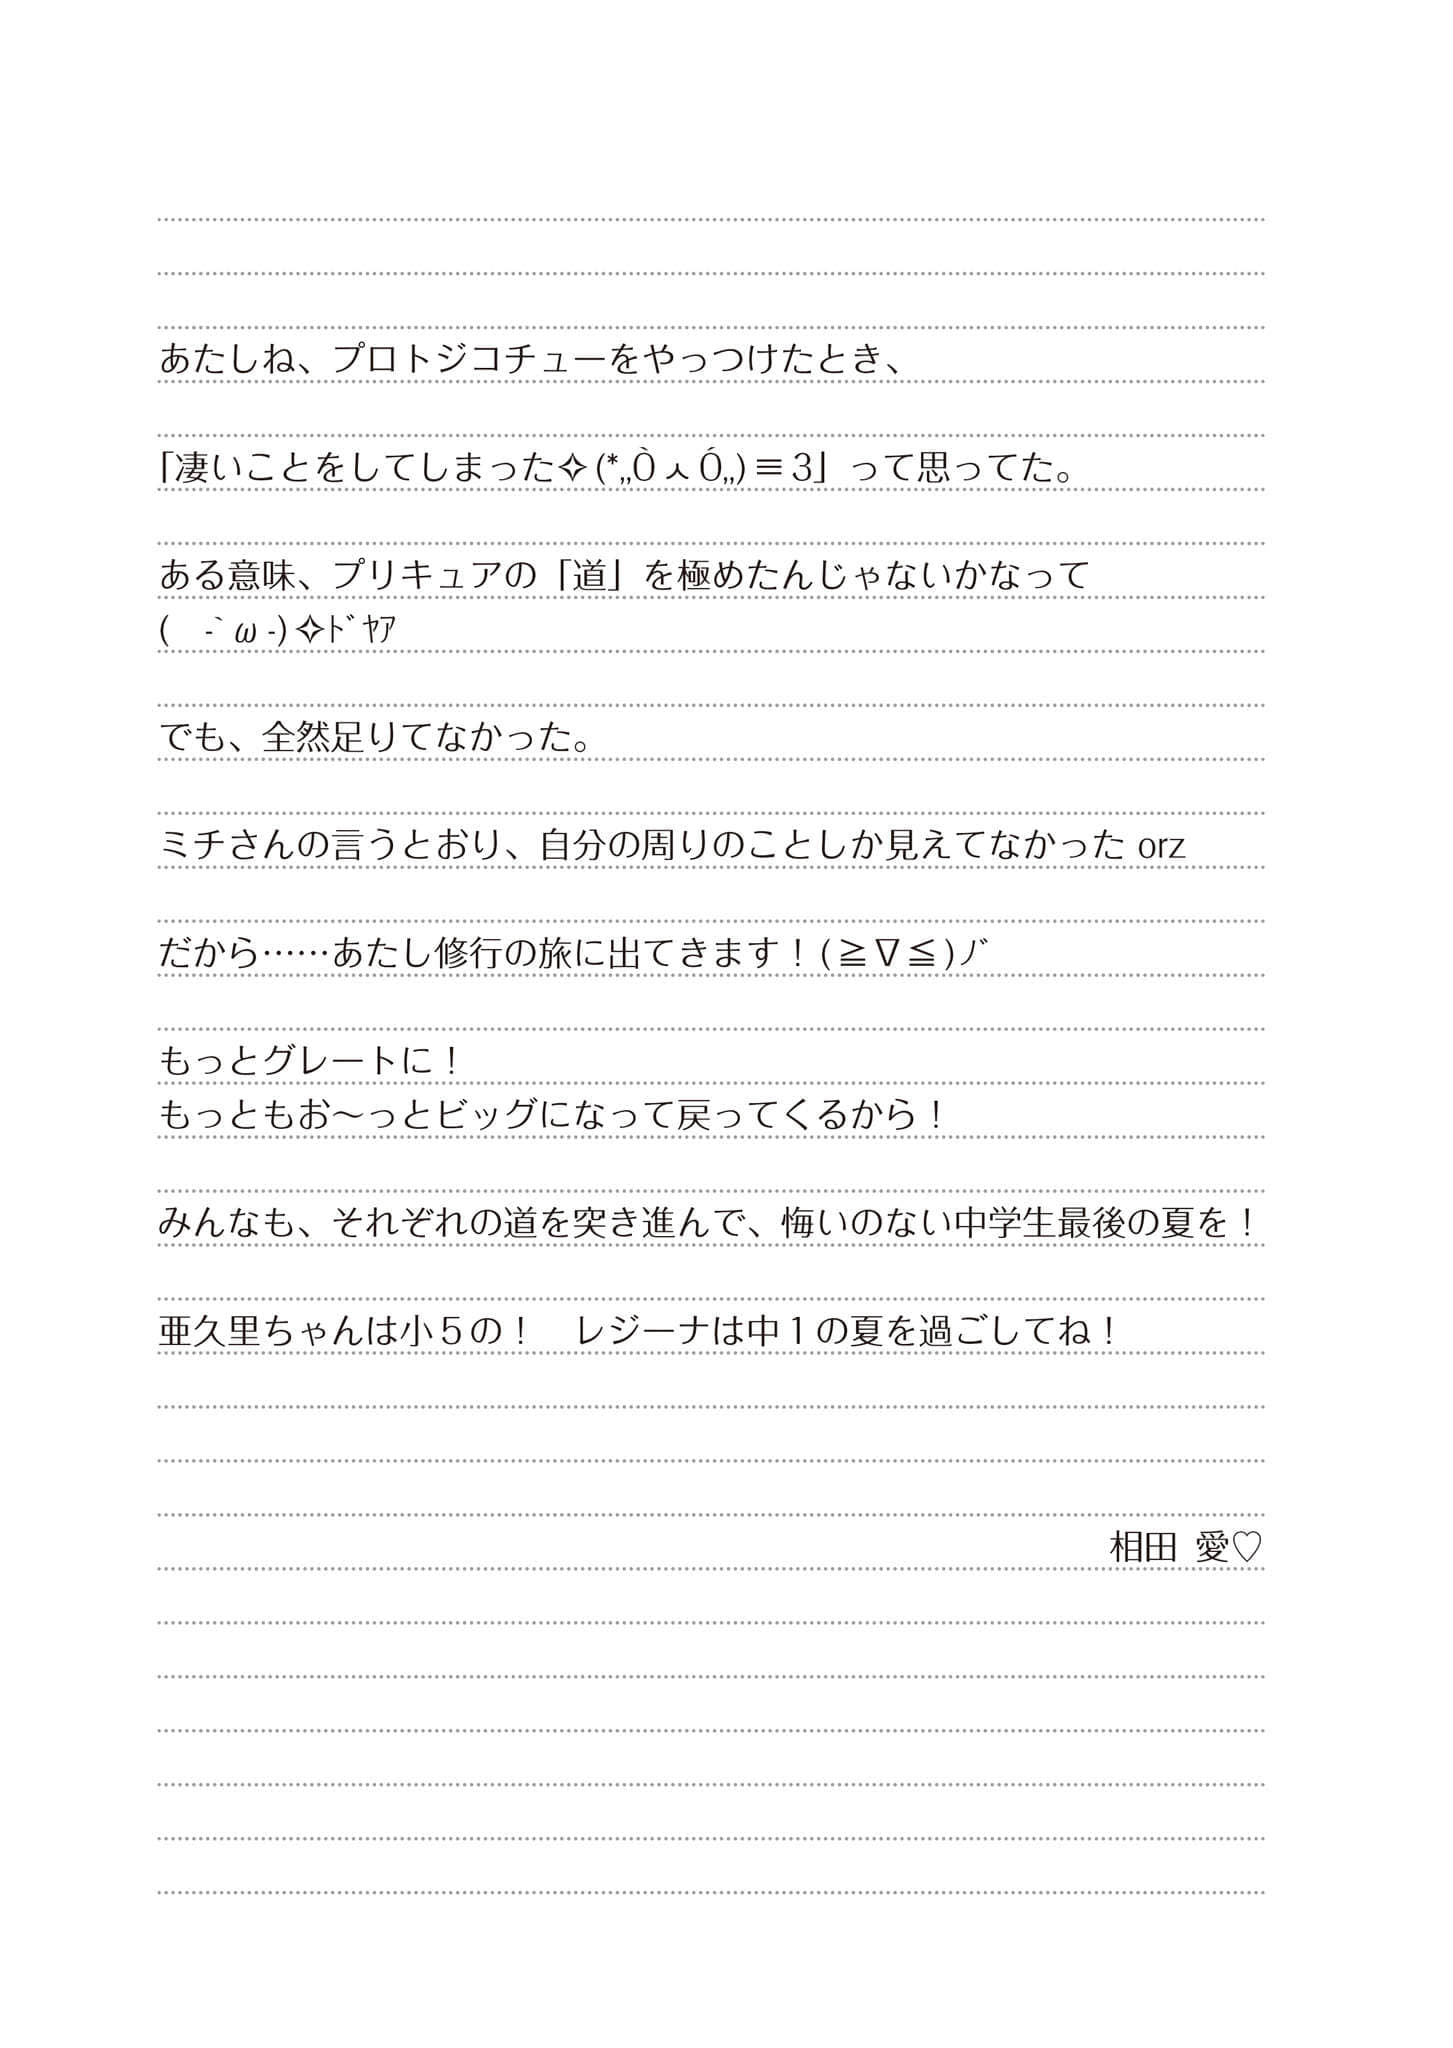 あたしね、プロトジコチューをやっつけたとき、
「凄いことをしてしまった✧(*,,Ò ㅅ Ó,,)≡3」って思ってた。
ある意味、プリキュアの「道」を極めたんじゃないかなって
(　-`ω-)✧ﾄﾞﾔｱ
でも、全然足りてなかった。
ミチさんの言うとおり、自分の周りのことしか見えてなかった orz
だから……あたし修行の旅に出てきます！(≧∇≦)ﾉﾞ
もっとグレートに！
もっともお～っとビッグになって戻ってくるから！
みんなも、それぞれの道を突き進んで、悔いのない中学生最後の夏を！
亜久里ちゃんは小５の！　レジーナは中１の夏を過ごしてね！
相田 愛♡